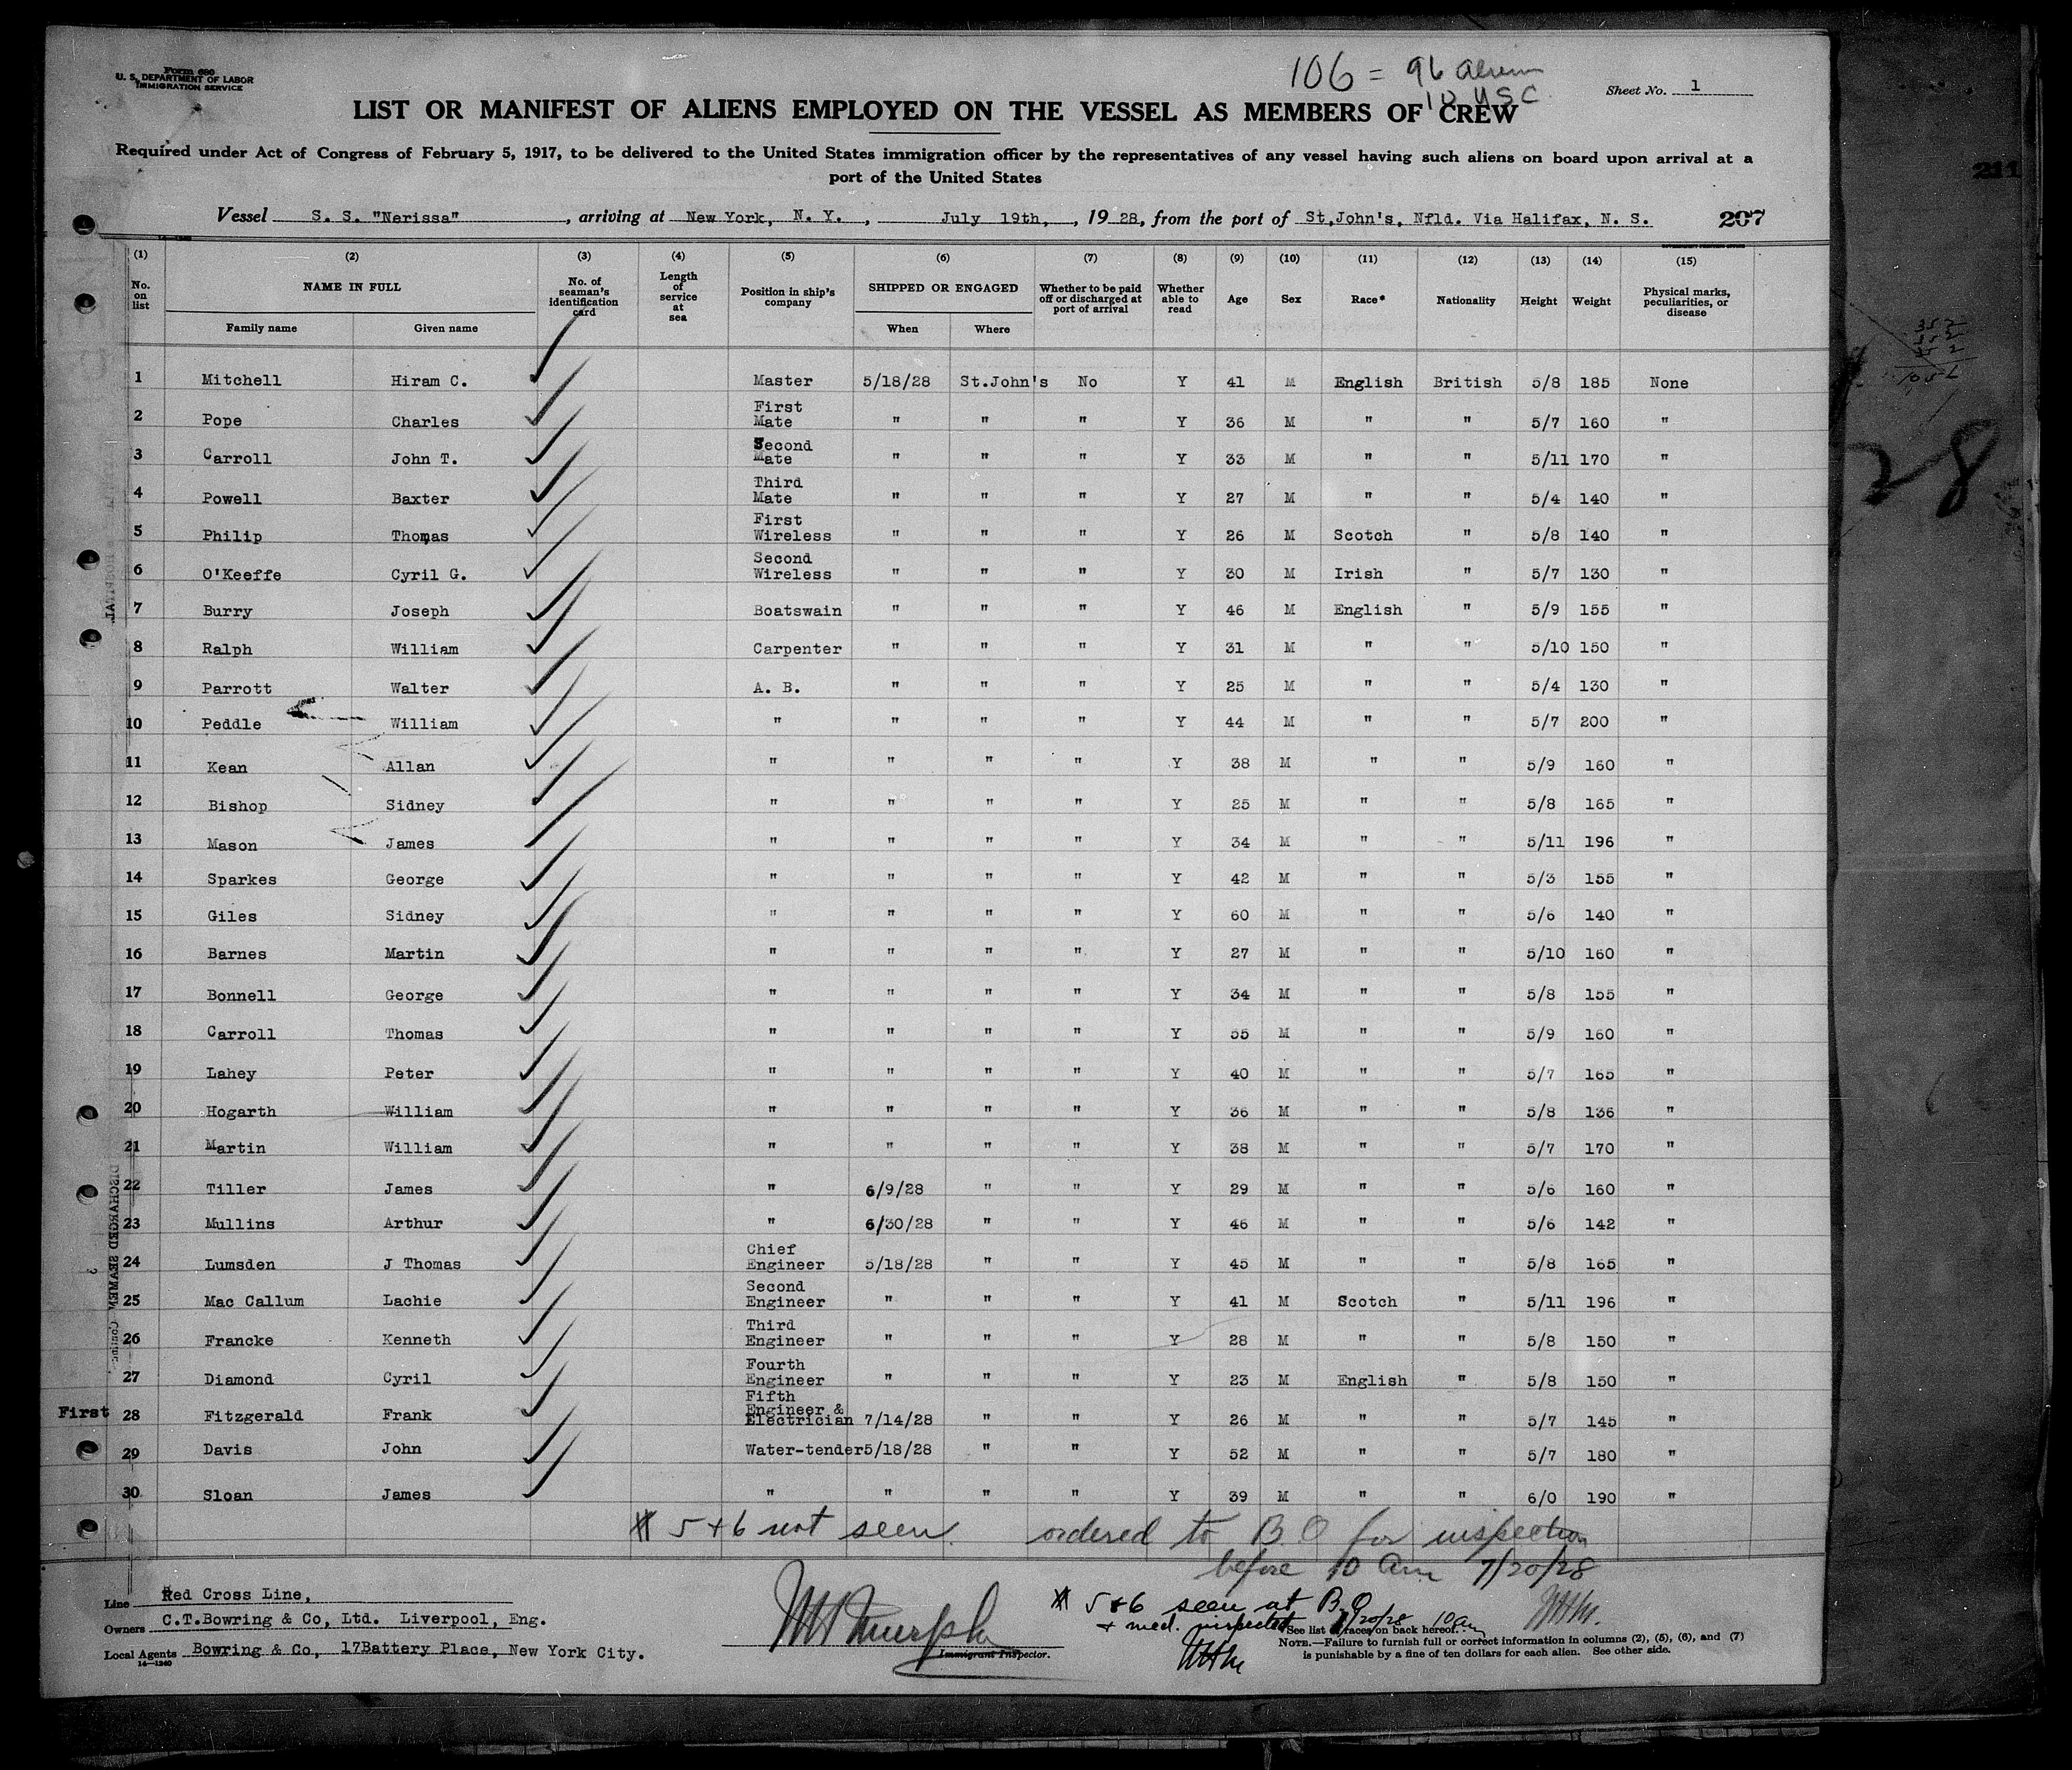 Form 680
U. S. DEPARTMENT OF LABOR
IMMIGRATION SERVICE
106 = 96 alien
10 USC
Sheet No. 1
LIST OR MANIFEST OF ALIENS EMPLOYED ON THE VESSEL AS MEMBERS OF CREW
Required under Act of Congress of February 5, 1917, to be delivered to the United States immigration officer by the representatives of any vessel having such aliens on board upon arrival at a
port of the United States
Vessel S. S. "Nerissa", arriving at New York, N. Y., July 19th, 1928, from the port of St,John's, Nfld. Via Halifax, N. S. 207
211
(1) (2) (3) (4) (5) (6) (7) (8) (9) (10) (11) (12) (13) (14) (15)
No. on list NAME IN FULL No. of seaman's identification card Length of service at sea Position in ship's company SHIPPED OR ENGAGED Whether to be paid off or discharged at port of arrival Whether able to read Age Sex Race* Nationality Height Weight Physical marks, peculiarities, or disease
Family name Given name When Where
1 Mitchell Hiram C. Master 5/18/28 St.John's No Y 41 M English British 5/8 185 None
2 Pope Charles First Mate " " " Y 36 M " " 5/7 160 "
3 Carroll John T. Second Mate " " " Y 33 M " " 5/11 170 "
4 Powell Baxter Third Mate " " " Y 27 M " " 5/4 140 "
5 Philip Thomas First Wireless " " " Y 26 M Scotch " 5/8 140 "
6 O'Keeffe Cyril G. Second Wireless " " " Y 30 M Irish " 5/7 130 "
7 Burry Joseph Boatswain " " " Y 46 M English " 5/9 155 "
8 Ralph William Carpenter " " " Y 31 M " " 5/10 150 "
9 Parrott Walter A. B. " " " Y 25 M " " 5/4 130 "
10 Peddle William " " " " Y 44 M " " 5/7 200 "
11 Kean Allan " " " " Y 38 M " " 5/9 160 "
12 Bishop Sidney " " " " Y 25 M " " 5/8 165 "
13 Mason James " " " " Y 34 M " " 5/11 196 "
14 Sparkes George " " " " Y 42 M " " 5/3 155 "
15 Giles Sidney " " " " Y 60 M " " 5/6 140 "
16 Barnes Martin " " " " Y 27 M " " 5/10 160 "
17 Bonnell George " " " " Y 34 M " " 5/8 155 "
18 Carroll Thomas " " " " Y 55 M " " 5/9 160 "
19 Lahey Peter " " " " Y 40 M " " 5/7 165 "
20 Hogarth William " " " " Y 36 M " " 5/8 136 "
21 Martin William " " " " Y 38 M " " 5/7 170 "
22 Tiller James " 6/9/28 " " Y 29 M " " 5/6 160 "
23 Mullins Arthur " 6/30/28 " " Y 46 M " " 5/6 142 "
24 Lumsden J Thomas Chief Engineer 5/18/28 " " Y 45 M " " 5/8 165 "
25 Mac Callum Lachie Second Engineer " " " Y 41 M Scotch " 5/11 196 "
26 Francke Kenneth Third Engineer " " " Y 28 M " " 5/8 150 "
27 Diamond Cyril Fourth Engineer " " " Y 23 M English " 5/8 150 "
First 28 Fitzgerald Frank Fifth Engineer & Electrician 7/14/28 " " Y 26 M " " 5/7 145 "
29 Davis John Water-tender 5/18/28 " " Y 52 M " " 5/7 180 "
30 Sloan James " " " " Y 39 M " " 6/0 190 "
28
DISCHARGED SEAMEN
# 5 + 6 not seen. ordered to B.O for inspection
before 10 am 7/20/28
Line Red Cross Line,
Owners C.T.Bowring & Co, Ltd. Liverpool, Eng.
Local Agents Bowring & Co, 17Battery Place, New York City.
14—1240
Immigrant Inspector.
# 5+6 seen at B.O
+ med. inspected 7/20/28 10am
*See list of races on back hereof.
NOTE.—Failure to furnish full or correct information in columns (2), (5), (6), and (7)
is punishable by a fine of ten dollars for each alien. See other side.